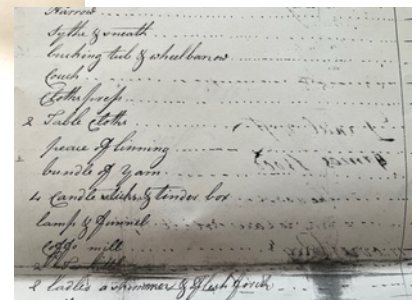 Harrow
Sythe & sneath
bucking tub & wheelbarrow
Couch
Clothspress
2 Table Cloths
peace of linning
bundle of yarn
4 Candle sticks & tinder box
lamp & funnel
Coffe mill
2 ladles a skimmer & flesh forck